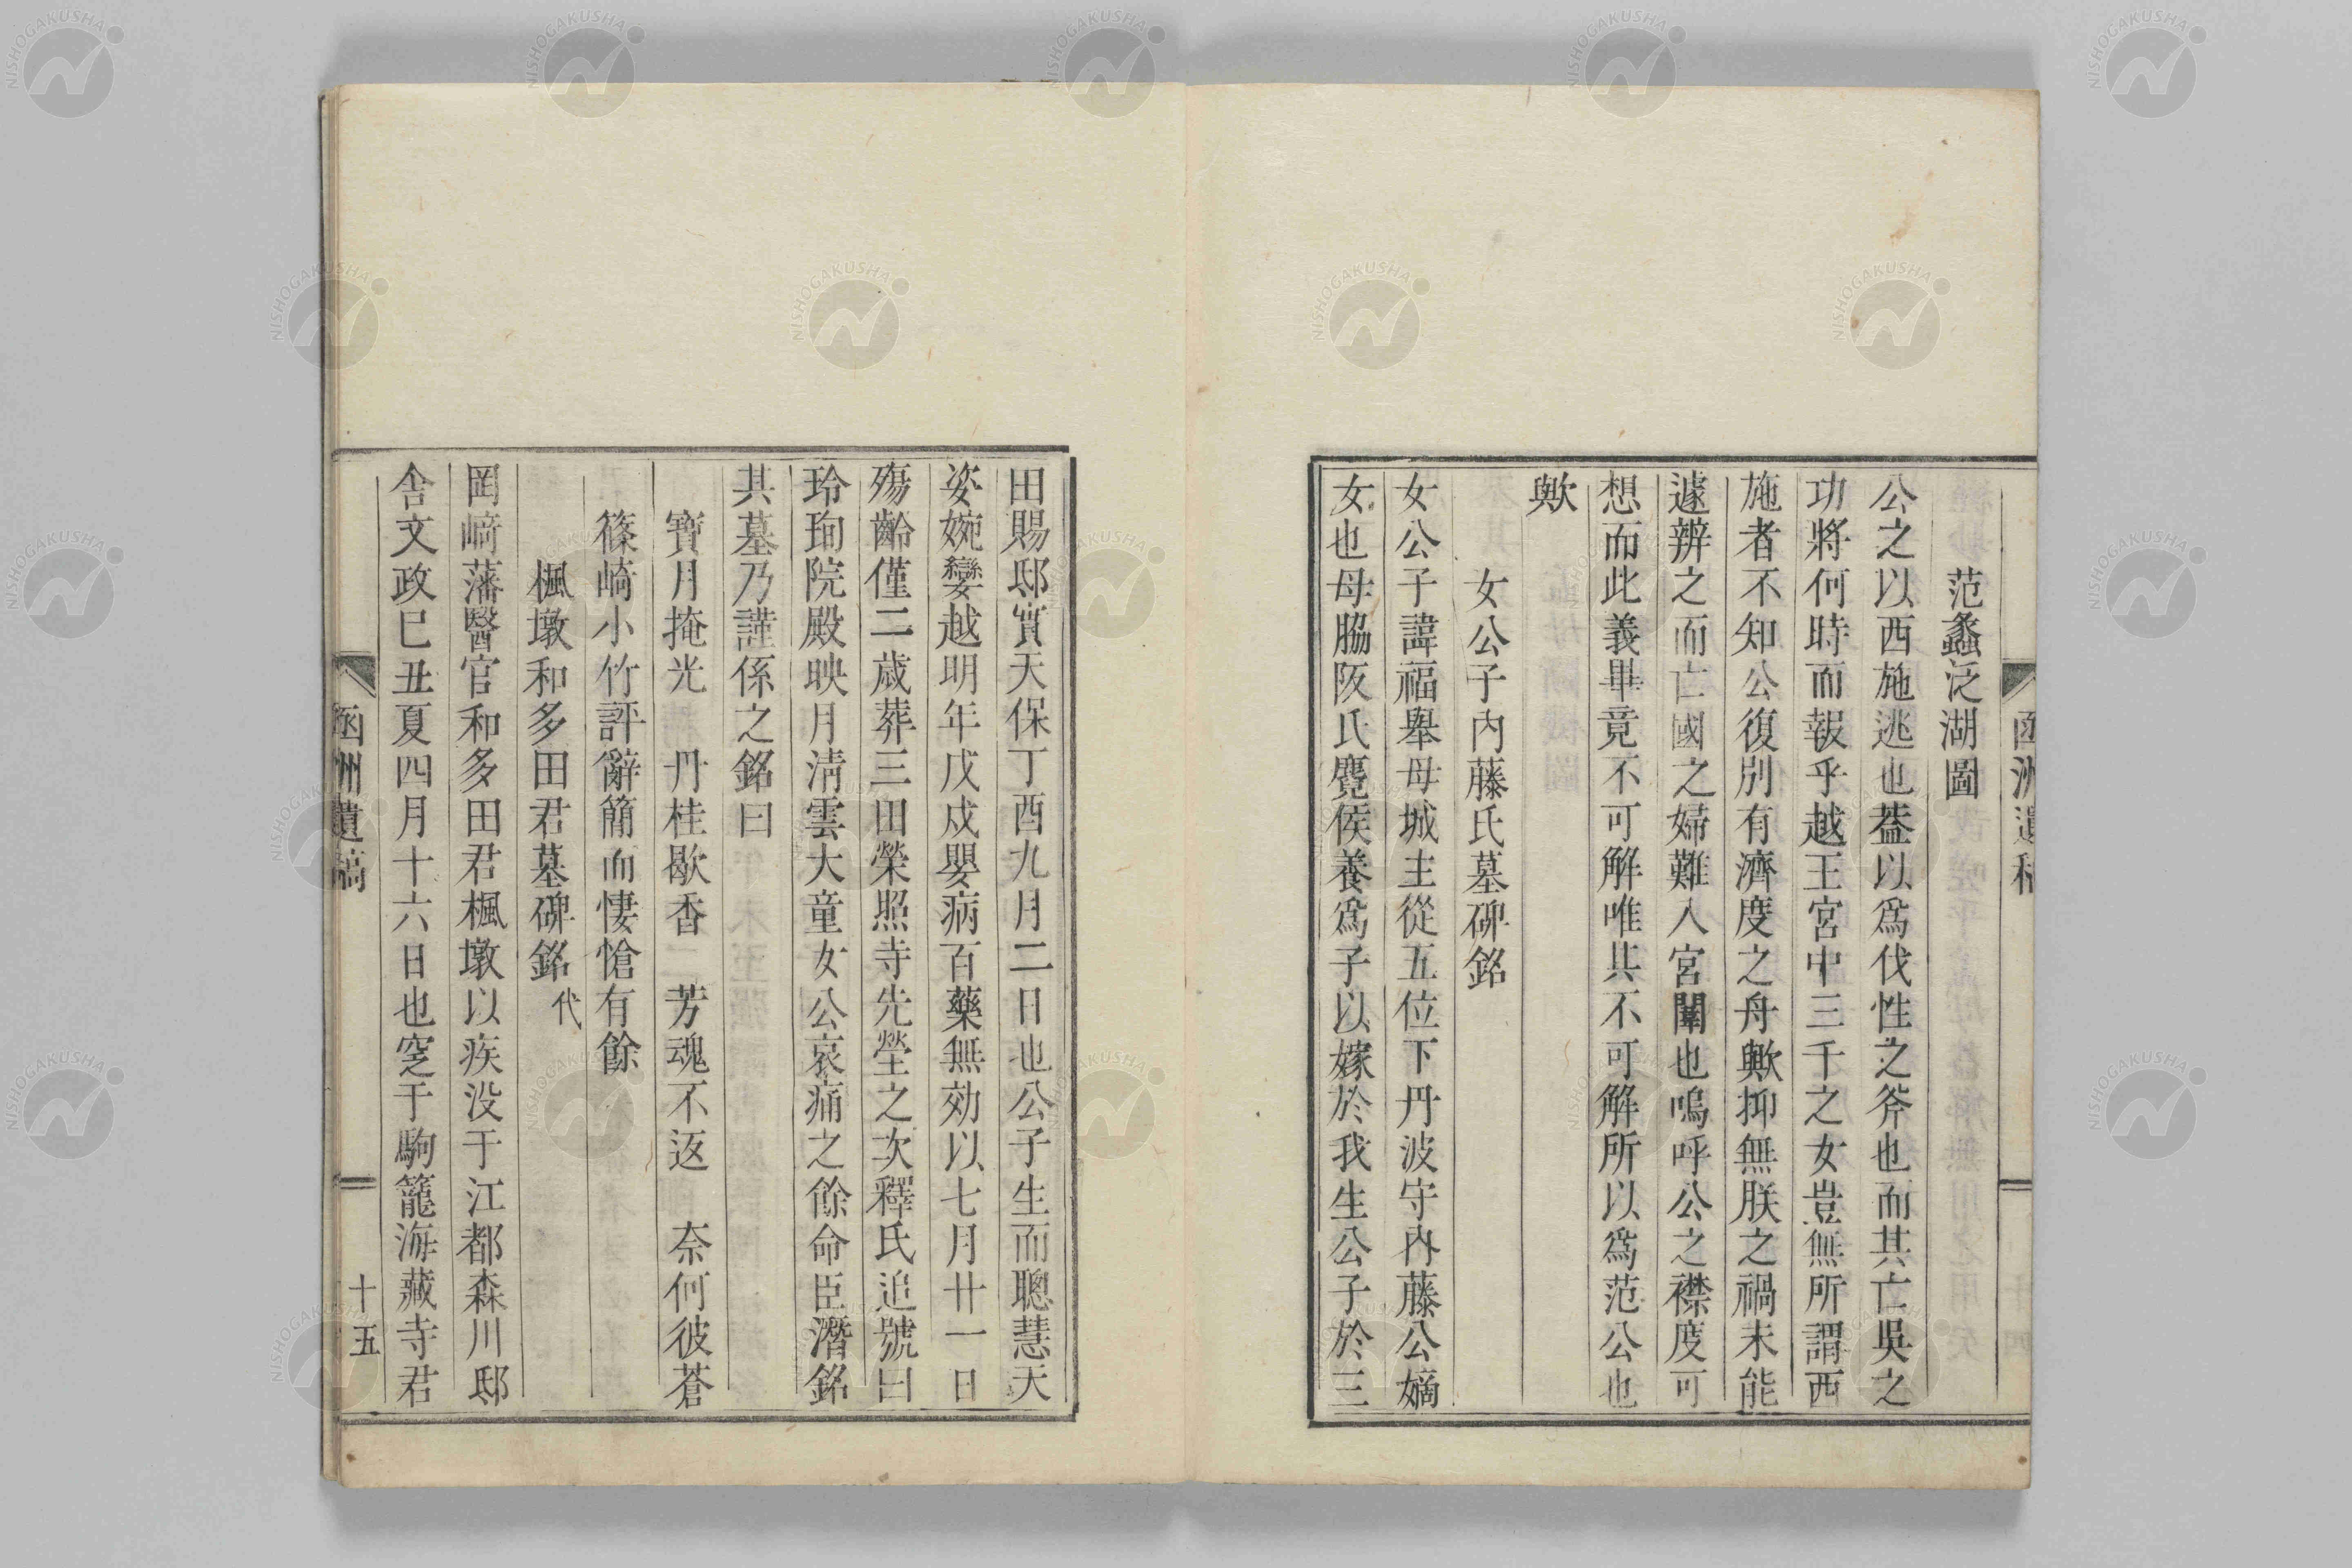 函洲遺稿
范蠡泛湖圖
公之以西施逃也葢以爲伐性之斧也而其亡吳之
功將何時而報乎越王宮中三千之女豈無所謂西
施者不知公復別有濟度之舟歟抑無朕之禍未能
遽辨之而亡國之婦難入宮闈也嗚呼公之襟度可
想而此義畢竟不可解唯其不可解所以爲范公也
歟
女公子內藤氏墓碑銘
女公子諱福擧母城主從五位下丹波守內藤公嫡
女也母脇阪氏麑侯養爲子以嫁於我生公子於三
田賜邸實天保丁酉九月二日也公子生而聰慧天
姿婉孌越明年戊戌嬰病百藥無効以七月廿一日
殤齡僅二歲葬三田榮照寺先塋之次釋氏追號曰
玲珣院殿映月淸雲大童女公哀痛之餘命臣潛銘
其墓乃謹係之銘曰
寶月掩光 丹桂歇香 芳魂不返 奈何彼蒼
篠崎小竹評辭簡而悽愴有餘
楓墩和多田君墓碑銘 代
岡崎藩醫官和多田君楓墩以疾没于江都森川邸
舍文政己丑夏四月十六日也窆于駒籠海藏寺君
函洲遺稿
十五
NISHOGAKUSHA